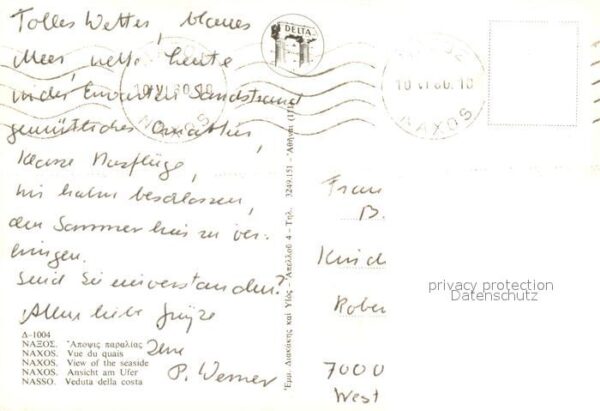 Tolles Wetter, blaues
Meer, nette Leute
in der Sandstrand
gemütliches Quartier,
klasse Ausflüge,
wir haben beschlossen,
den Sommer hier zu ver-
bringen.
Sind Sie einverstanden?
Alles liebe Grüße
P. Werner
Δ-1004
ΝΑΞΟΣ. Ἄποψις παραλίας
NAXOS. Vue du quais
NAXOS. View of the seaside
NAXOS. Ansicht am Ufer
NASSO. Veduta della costa
Ἐμμ. Διακάκης καὶ Υἱός - Ἀπελλοῦ 4 - Τηλ. 3249.151 - Ἀθῆναι (111)
DELTA
10 VI 80. 10
NAXOS
10 VI 80. 10
NAXOS
Frau
B.
Kind
Rober
7000
West
privacy protection
Datenschutz